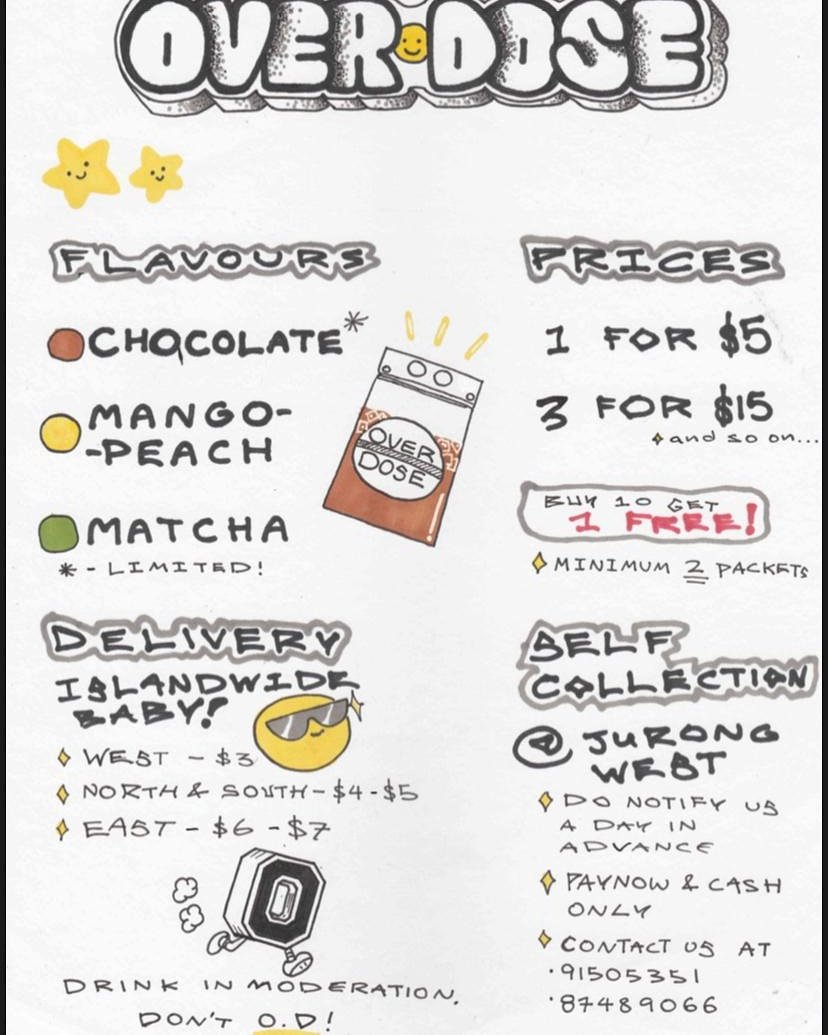 OVER DOSE
FLAVOURS
CHOCOLATE*
MANGO-
-PEACH
MATCHA
* - LIMITED!
OVER
DOSE
PRICES
1 FOR $5
3 FOR $15
and so on...
BUY 10 GET
1 FREE!
MINIMUM 2 PACKETS
DELIVERY
ISLANDWIDE
BABY!
WEST - $3
NORTH & SOUTH - $4 - $5
EAST - $6 - $7
O
DRINK IN MODERATION.
DON'T O.D!
SELF
COLLECTION
@ JURONG
WEST
DO NOTIFY US
A DAY IN
ADVANCE
PAYNOW & CASH
ONLY
CONTACT US AT
· 91505351
· 87489066